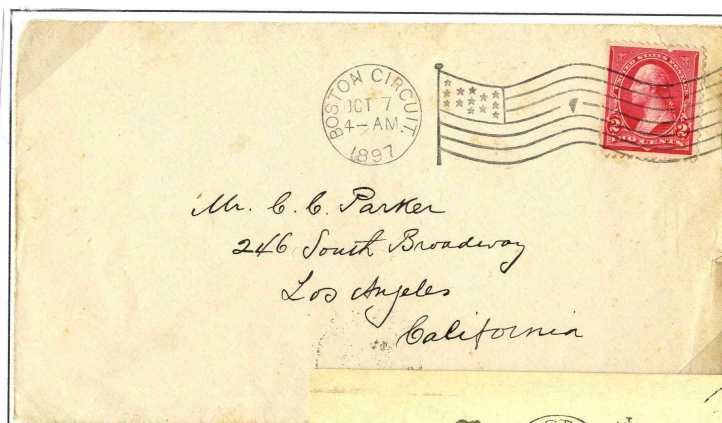 BOSTON CIRCUIT.
OCT 7
4-AM
1897
UNITED STATES POSTAGE
2 2
TWO CENTS
Mr. C. C. Parker
246 South Broadway
Los Angeles
California